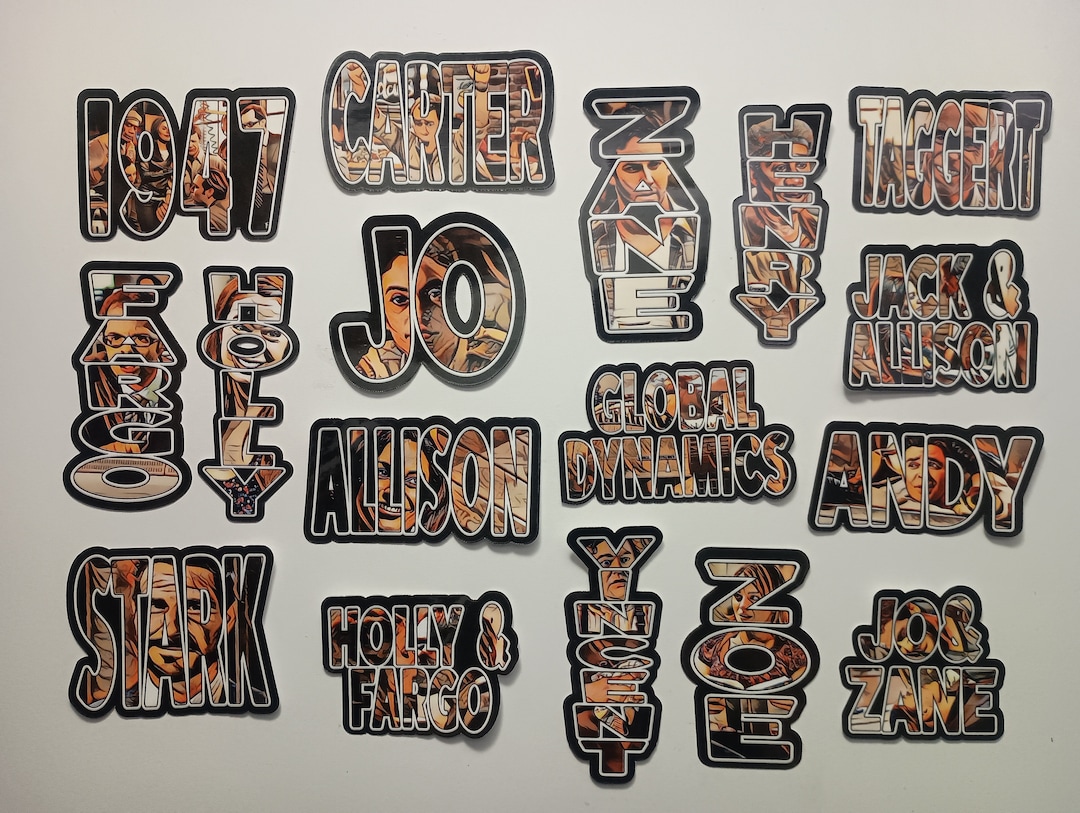 1947
CARTER
ZANE
HENRY
TAGGERT
FARGO
HOLLY
JO
JACK &
ALLISON
ALLISON
GLOBAL
DYNAMICS
ANDY
STARK
HOLLY &
FARGO
VINCENT
ZOE
JO &
ZANE